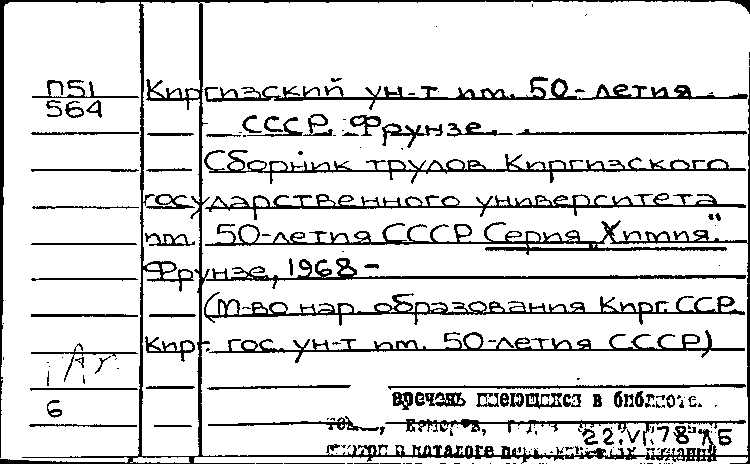 П51
564
Киргизский ун-т им. 50-летия
СССР. Фрунзе.
Сборник трудов Киргизского
государственного университета
им. 50-летия СССР Серия „Химия".
Фрунзе, 1968 -
(М-во нар. образования Кирг. ССР
Кирг. гос. ун-т им. 50-летия СССР)
6
имеющихся в
22.VI.78
смотри в каталоге изданий